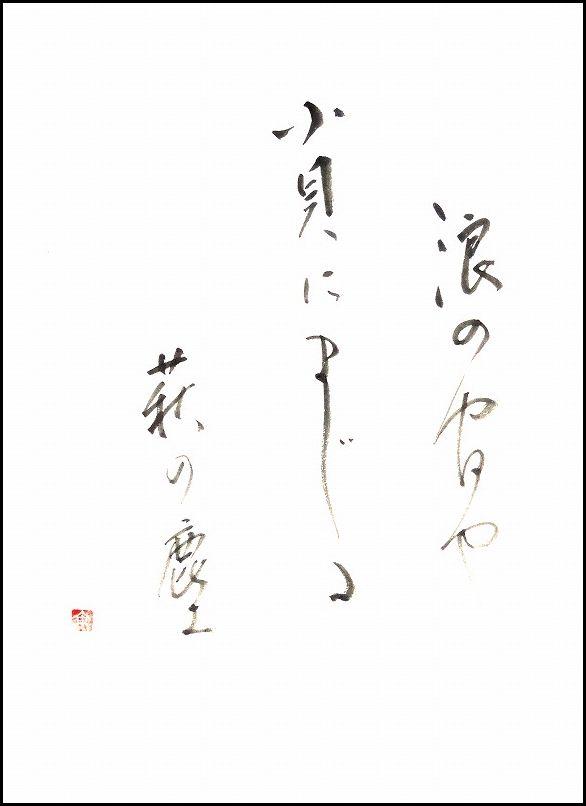 浪の間や
小貝にまじる
萩の塵